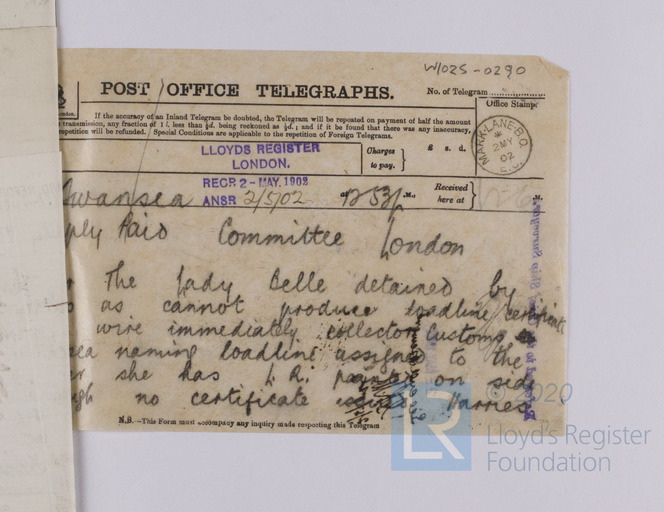 W1025-0290
POST OFFICE TELEGRAPHS.
No. of Telegram
Office Stamp.
If the accuracy of an Inland Telegram be doubted, the Telegram will be repeated on payment of half the amount
transmission, any fraction of 1d. less than ½d. being reckoned as ½d.; and if it be found that there was any inaccuracy,
repetition will be refunded. Special Conditions are applicable to the repetition of Foreign Telegrams.
MARK-LANE-B.O.
2 MY
02
E.C.
LLOYDS REGISTER
LONDON.
Charges
to pay.
£ s. d.
RECR 2-MAY.1902
ANSR 2/5/02
Swansea
at 12 53 P.M.,
Received
here at
M.
Reply Paid Committee London
The Lady Belle detained by
as cannot produce loadline certificate
wire immediately collector Customs
naming loadline assigned to the
she has L.R. on side
no certificate Harries
N.B.—This Form must accompany any inquiry made respecting this Telegram
© 2020
LR
Lloyd's Register
Foundation